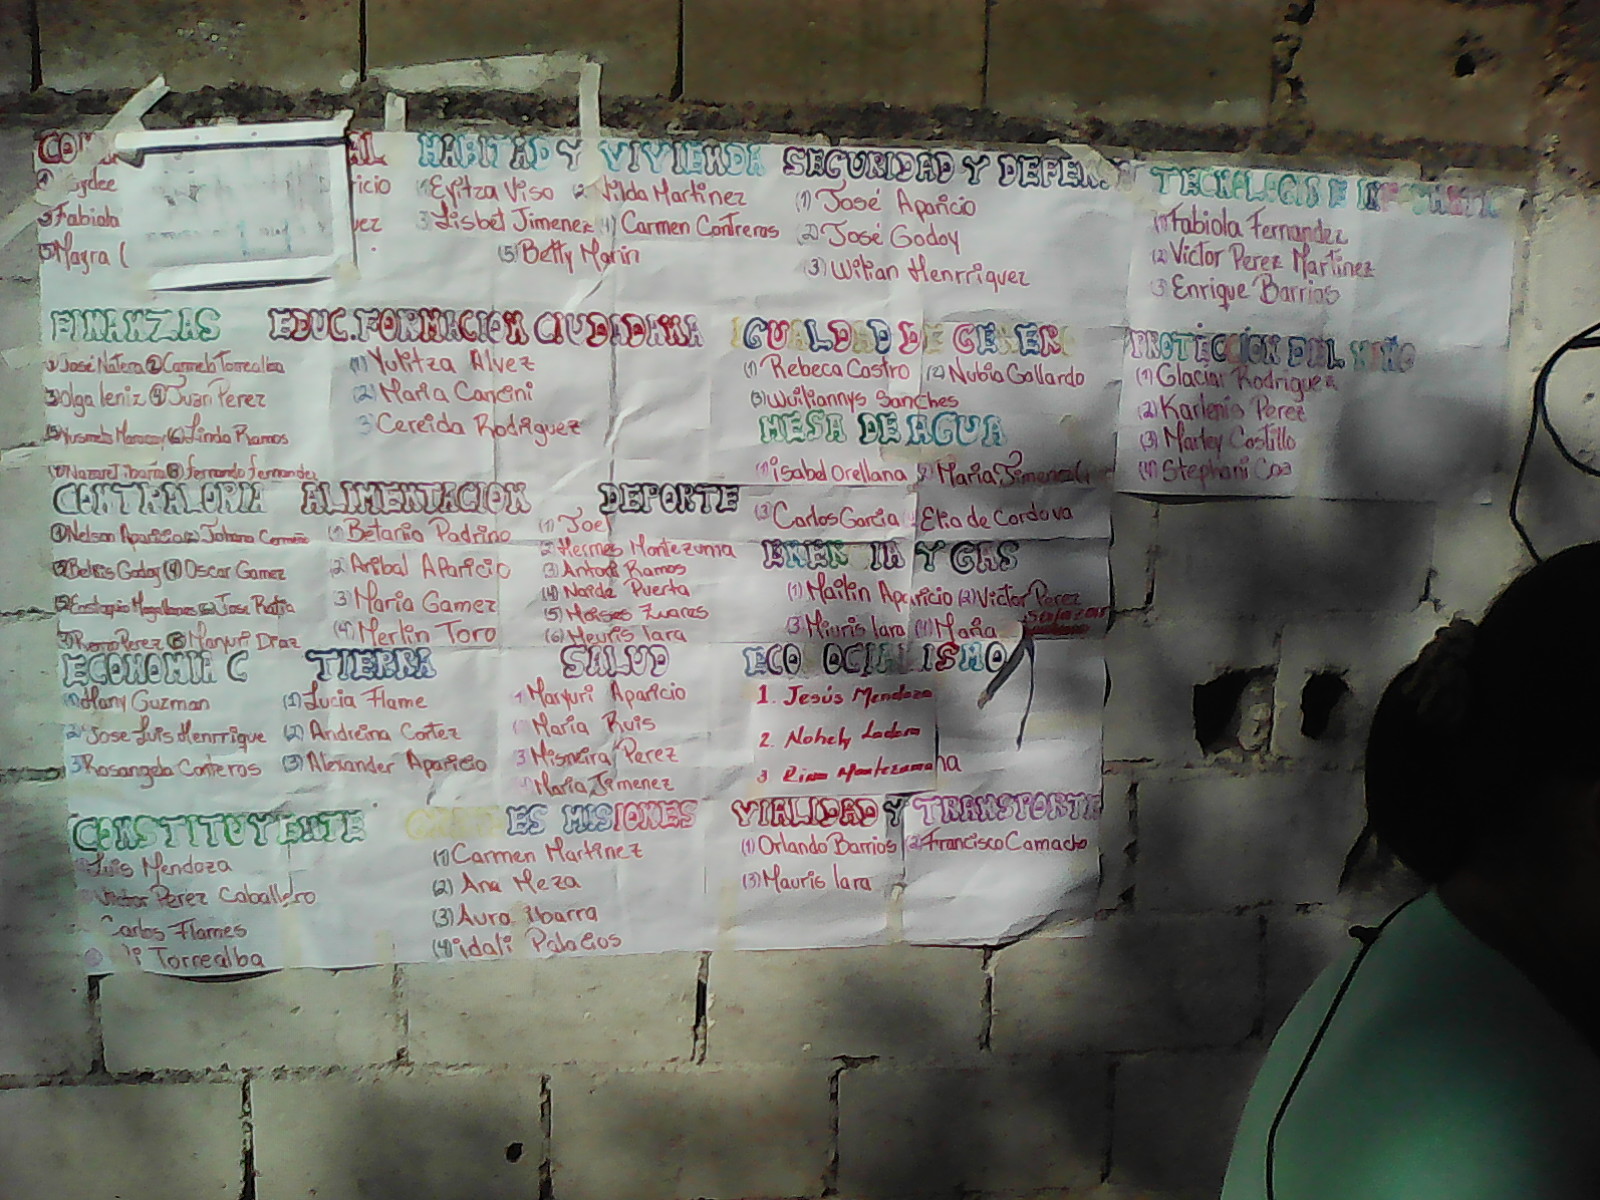 HABITAD Y VIVIENDA
(1) Eyitza Viso (2) Nilda Martinez
(3) Lisbet Jimenez (4) Carmen Contreras
(5) Betty Marin
SEGURIDAD Y DEFEN
(1) José Aparicio
(2) José Godoy
(3) Wilian Henrriquez
TECNOLOGIA E INFORMATI
(1) Fabiola Fernandez
(2) Victor Perez Martinez
(3) Enrique Barrios
AL
ydee
icio
(3) Fabiola
vez
(5) Mayra (
FINANZAS
(1) José Natera (2) Carmelo Torrealba
(3) Olga leniz (4) Juan Perez
(6) Linda Ramos
(8) fernando fernandez
EDUC. FORMACION CIUDADANA
(1) Yulitza Alvez
(2) Maria Cancini
(3) Cereida Rodriguez
IGUALDAD DE GENER
(1) Rebeca Castro (2) Nubia Gallardo
(3) Wuiliannys Sanches
PROTECCION DEL NIÑO
(1) Glaciar Rodriguez
(2) Karlenis Perez
(3) Marley Castillo
(4) Stephani
MESA DE AGUA
(1) isabel Orellana (2) Maria Jimenez
(3) Carlos Garcia Elia de Cordova
CONTRALORIA
(1) Nelson Aparicio (2) Johana
(3) Belkis Godoy (4) Oscar Gamez
(5) Jose
(7) Perez (8) Maryuri Diaz
ALIMENTACION
(1) Betania Padrino
(2) Anibal Aparicio
(3) Maria Gamez
(4) Merlin Toro
DEPORTE
(1) Joel
(2) Hermes Montezuma
(3) Antoni Ramos
(4) Naide Puerta
(5) Moises Zuares
(6) Meuris lara
ENER IA Y GAS
(1) Mailin Aparicio (2) Victor Perez
(3) Miuris lara (4) Maria
ECONOMIA C
(1) Hany Guzman
(2) Jose Luis Henrrique
(3) Rosangela Conteros
TIERRA
(1) Lucia Flame
(2) Andreina Cortez
(3) Alexander Aparicio
SALUD
Maryuri Aparicio
Maria Ruis
3 Misneira Perez
Maria Jimenez
ECO OCIALISMO
1. Jesús Mendoza
2. Nohely Ladera
3 Montezuma
CONSTITUYENTE
Luis Mendoza
Victor Perez Caballero
Carlos Flames
Torrealba
ES MISIONES
(1) Carmen Martinez
(2) Ana Meza
(3) Aura Ibarra
(4) idali Palacios
VIALIDAD Y TRANSPORTE
(1) Orlando Barrios (2) Francisco Camacho
(3) Mauris lara